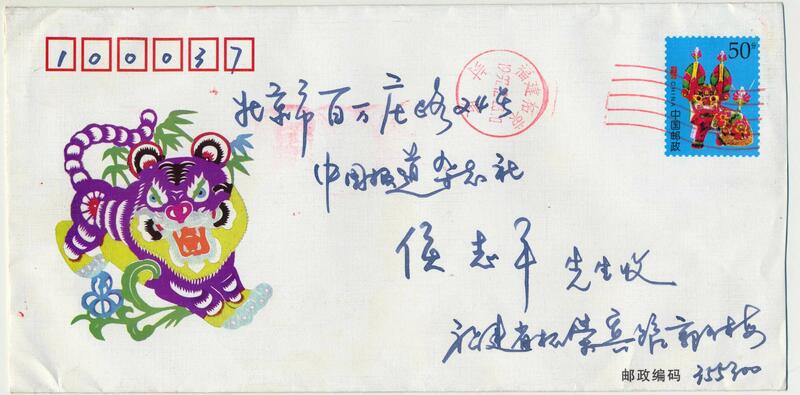 100037
50分
CHINA
中国邮政
福建
北京市百万庄路24号
中国报道杂志社
侯志平 先生收
福建省柘荣宾馆
邮政编码 355300